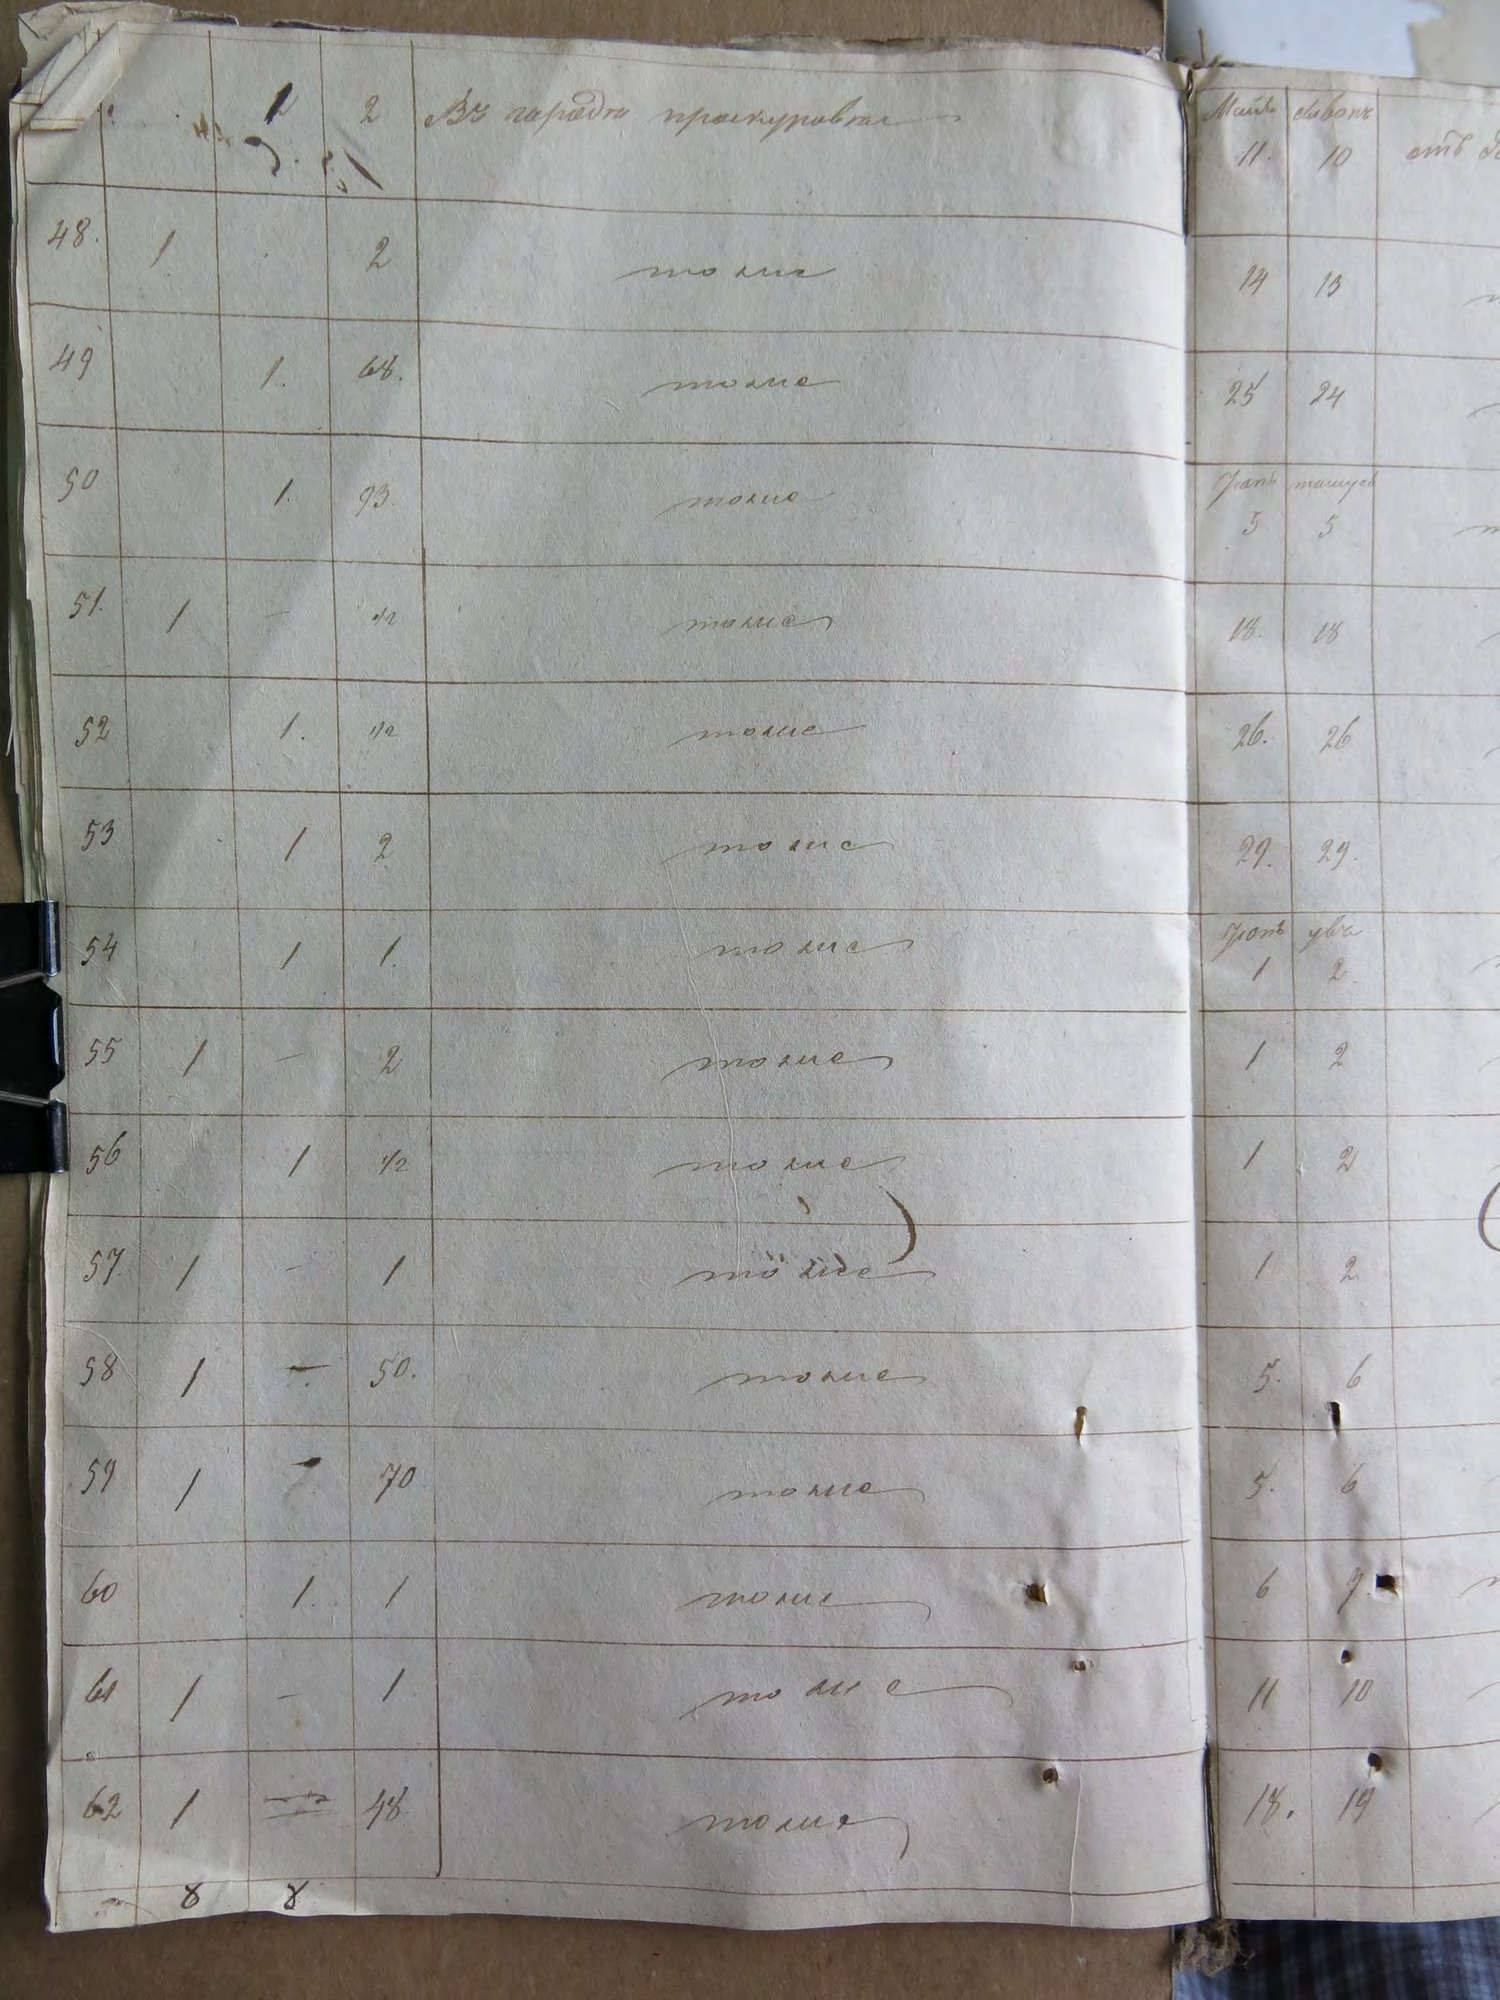 1 2 Въ городѣ проскуровѣ Маія сивонъ
11. 10 отъ
48. 1 2 тоже 14 13
49 1. 68. тоже 25 24
50 1. 93. тоже Іюнь тамузъ
5 5
51. 1 – 1/2 тоже 18. 18
52 1. 1/2 тоже 26. 26
53 1 2 тоже 29. 29.
54 1 1. тоже
1 2
55 1 – 2 тоже 1 2
56 1 1/2 тоже 1 2
57 1 – 1 тоже 1 2
58 1 – 50. тоже 5. 6
59 1 – 70 тоже 5. 6
60 1. 1 тоже 6 7.
61 1 – 1 тоже 11 10
62 1 – 48 тоже 18. 19
8 8